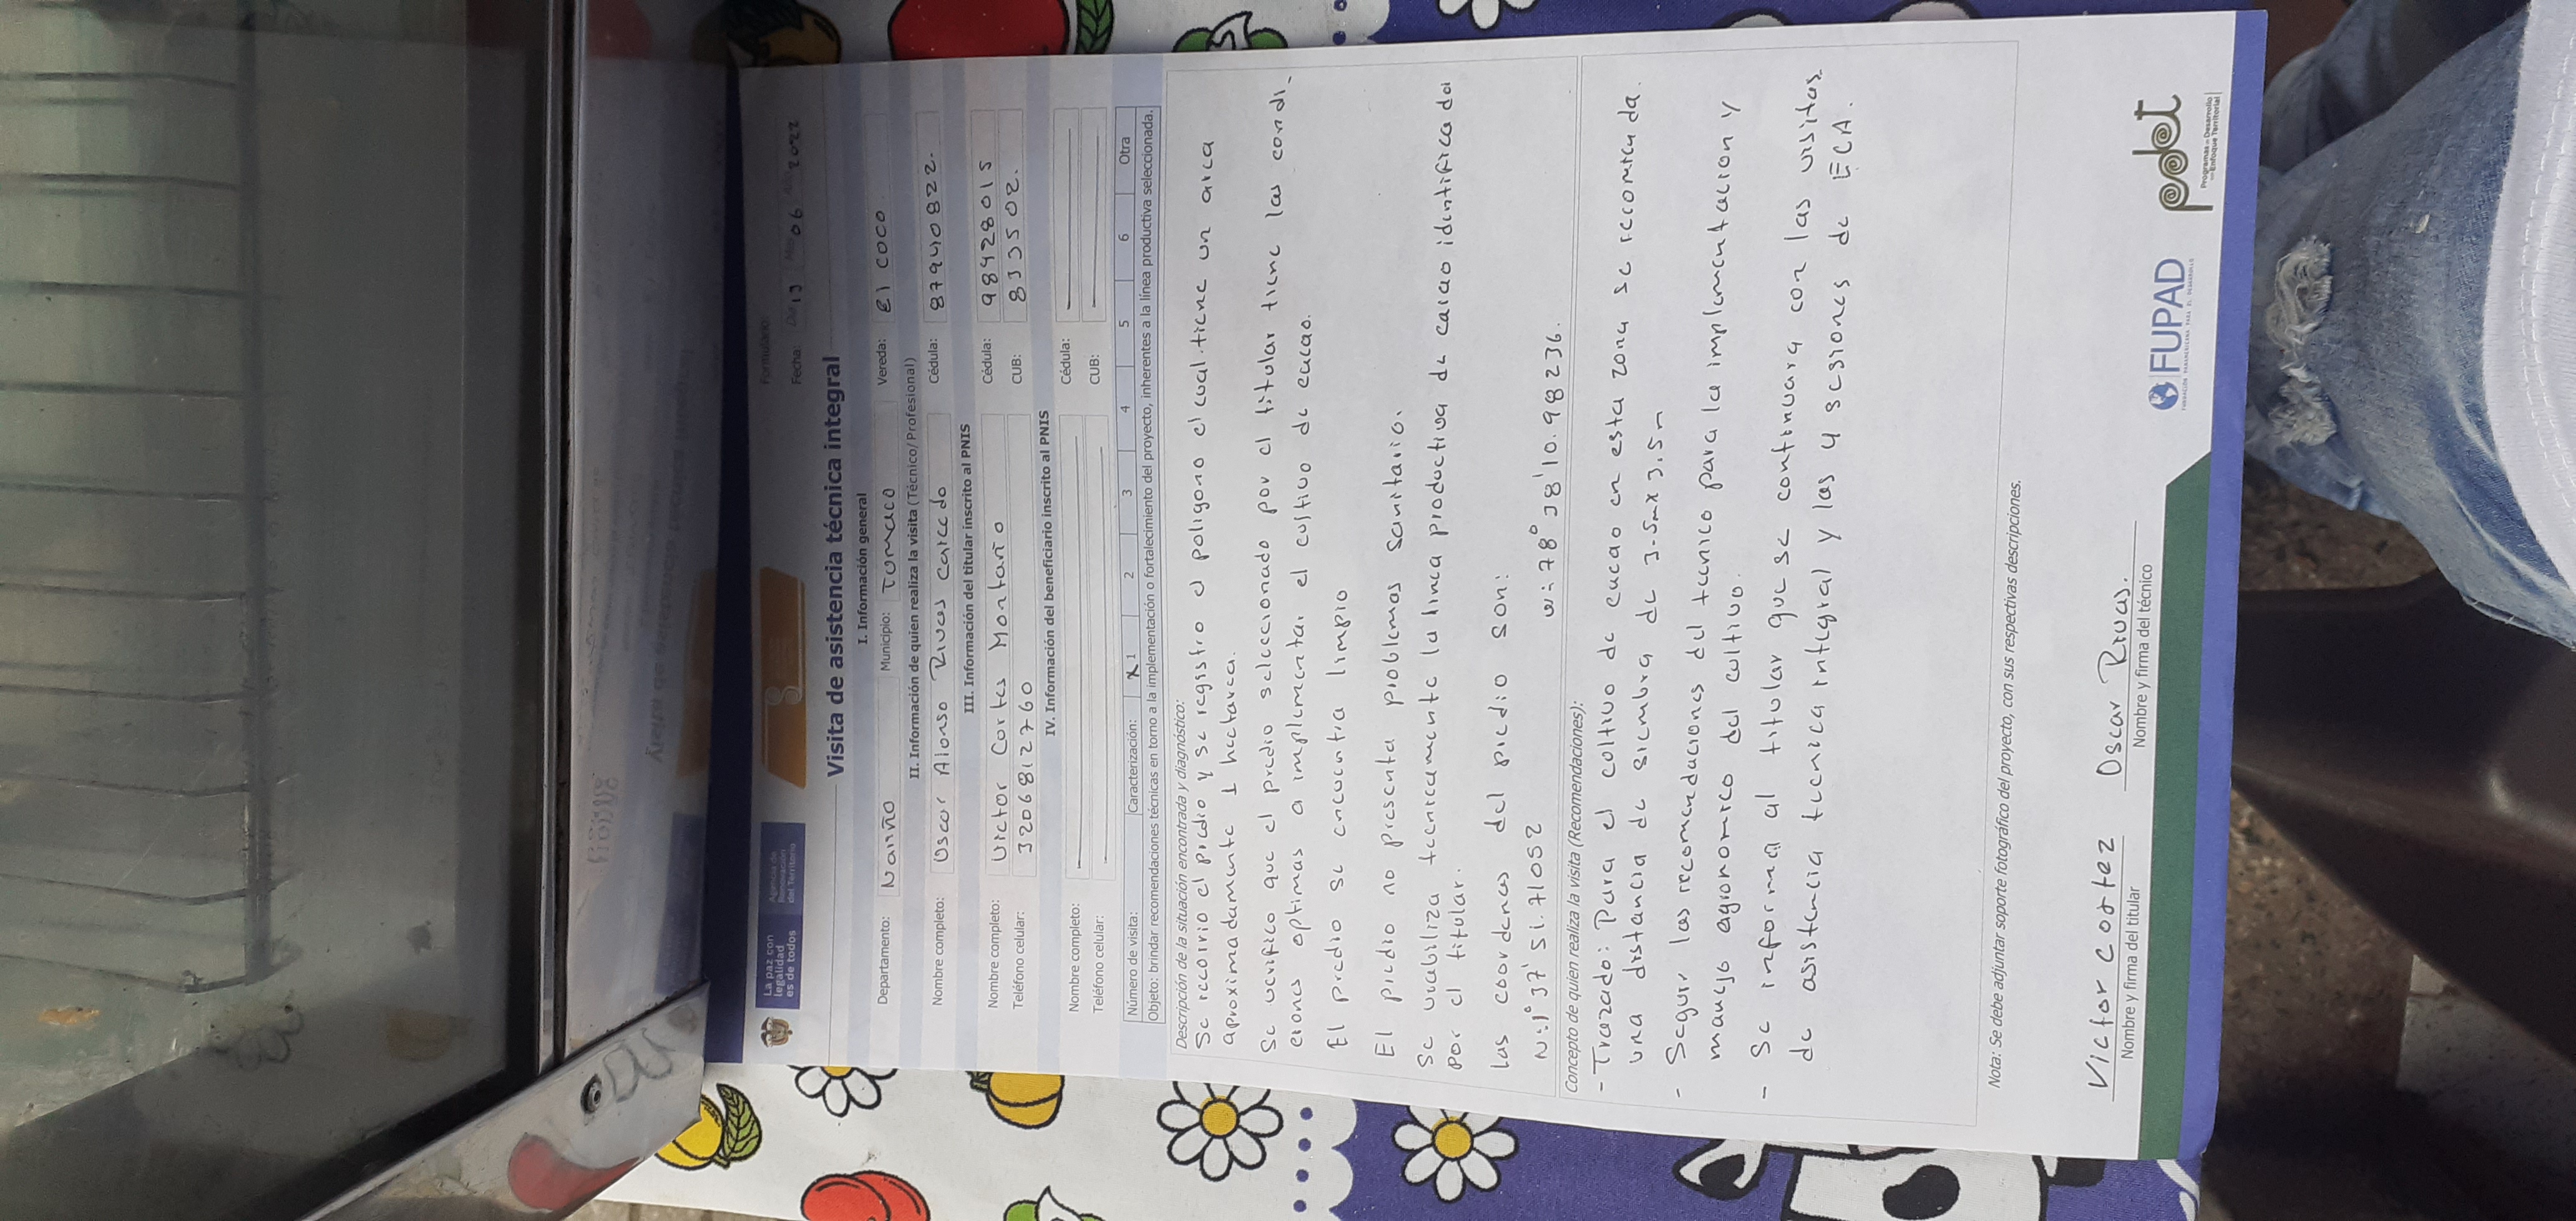 La paz con
legalidad
es de todos
Agencia de
Renovación
del Territorio
Formulario:
Fecha: Día 13 Mes 06 Año 2022
Visita de asistencia técnica integral
I. Información general
Departamento: Nariño Municipio: Tumaco Vereda: El coco
II. Información de quien realiza la visita (Técnico/Profesional)
Nombre completo: Oscar Alonso Rivas Caicedo Cédula: 87940822.
III. Información del titular inscrito al PNIS
Nombre completo: Victor Cortes Montaño Cédula: 98428015
Teléfono celular: 3206812760 CUB: 833502.
IV. Información del beneficiario inscrito al PNIS
Nombre completo: Cédula:
Teléfono celular: CUB:
Número de visita: Caracterización: X 1 2 3 4 5 6 Otra
Objeto: brindar recomendaciones técnicas en torno a la implementación o fortalecimiento del proyecto, inherentes a la línea productiva seleccionada.
Descripción de la situación encontrada y diagnóstico:
Se recorrio el predio y se registro el poligono el cual tiene un area
aproximadamente 1 hectarea.
Se verifico que el predio seleccionado por el titular tiene las condi.
ciones optimas a implementar el cultivo de cacao.
El predio se encuentra limpio
El predio no presenta problemas sanitario.
Se viabiliza tecnicamente la linea productiva de cacao identificada
por el titular.
las coordenas del predio son:
N:1°37'51.71052
W:78°38'10.98236.
Concepto de quien realiza la visita (Recomendaciones):
- Trazado: Para el cultivo de cacao en esta zona se recomienda.
una distancia de siembra de 3.5mx3.5m
- Seguir las recomendaciones del tecnico para la implementacion y
manejo agronomico del cultivo.
- Se informa al titular que se continuara con las visitas
de asistencia tecnica integral y las 4 sesiones de ECA.
Nota: Se debe adjuntar soporte fotográfico del proyecto, con sus respectivas descripciones.
Victor Cortez Oscar Rivas.
Nombre y firma del titular Nombre y firma del técnico
FUPAD
FUNDACIÓN PANAMERICANA PARA EL DESARROLLO
pdet
Programas de Desarrollo
con Enfoque Territorial